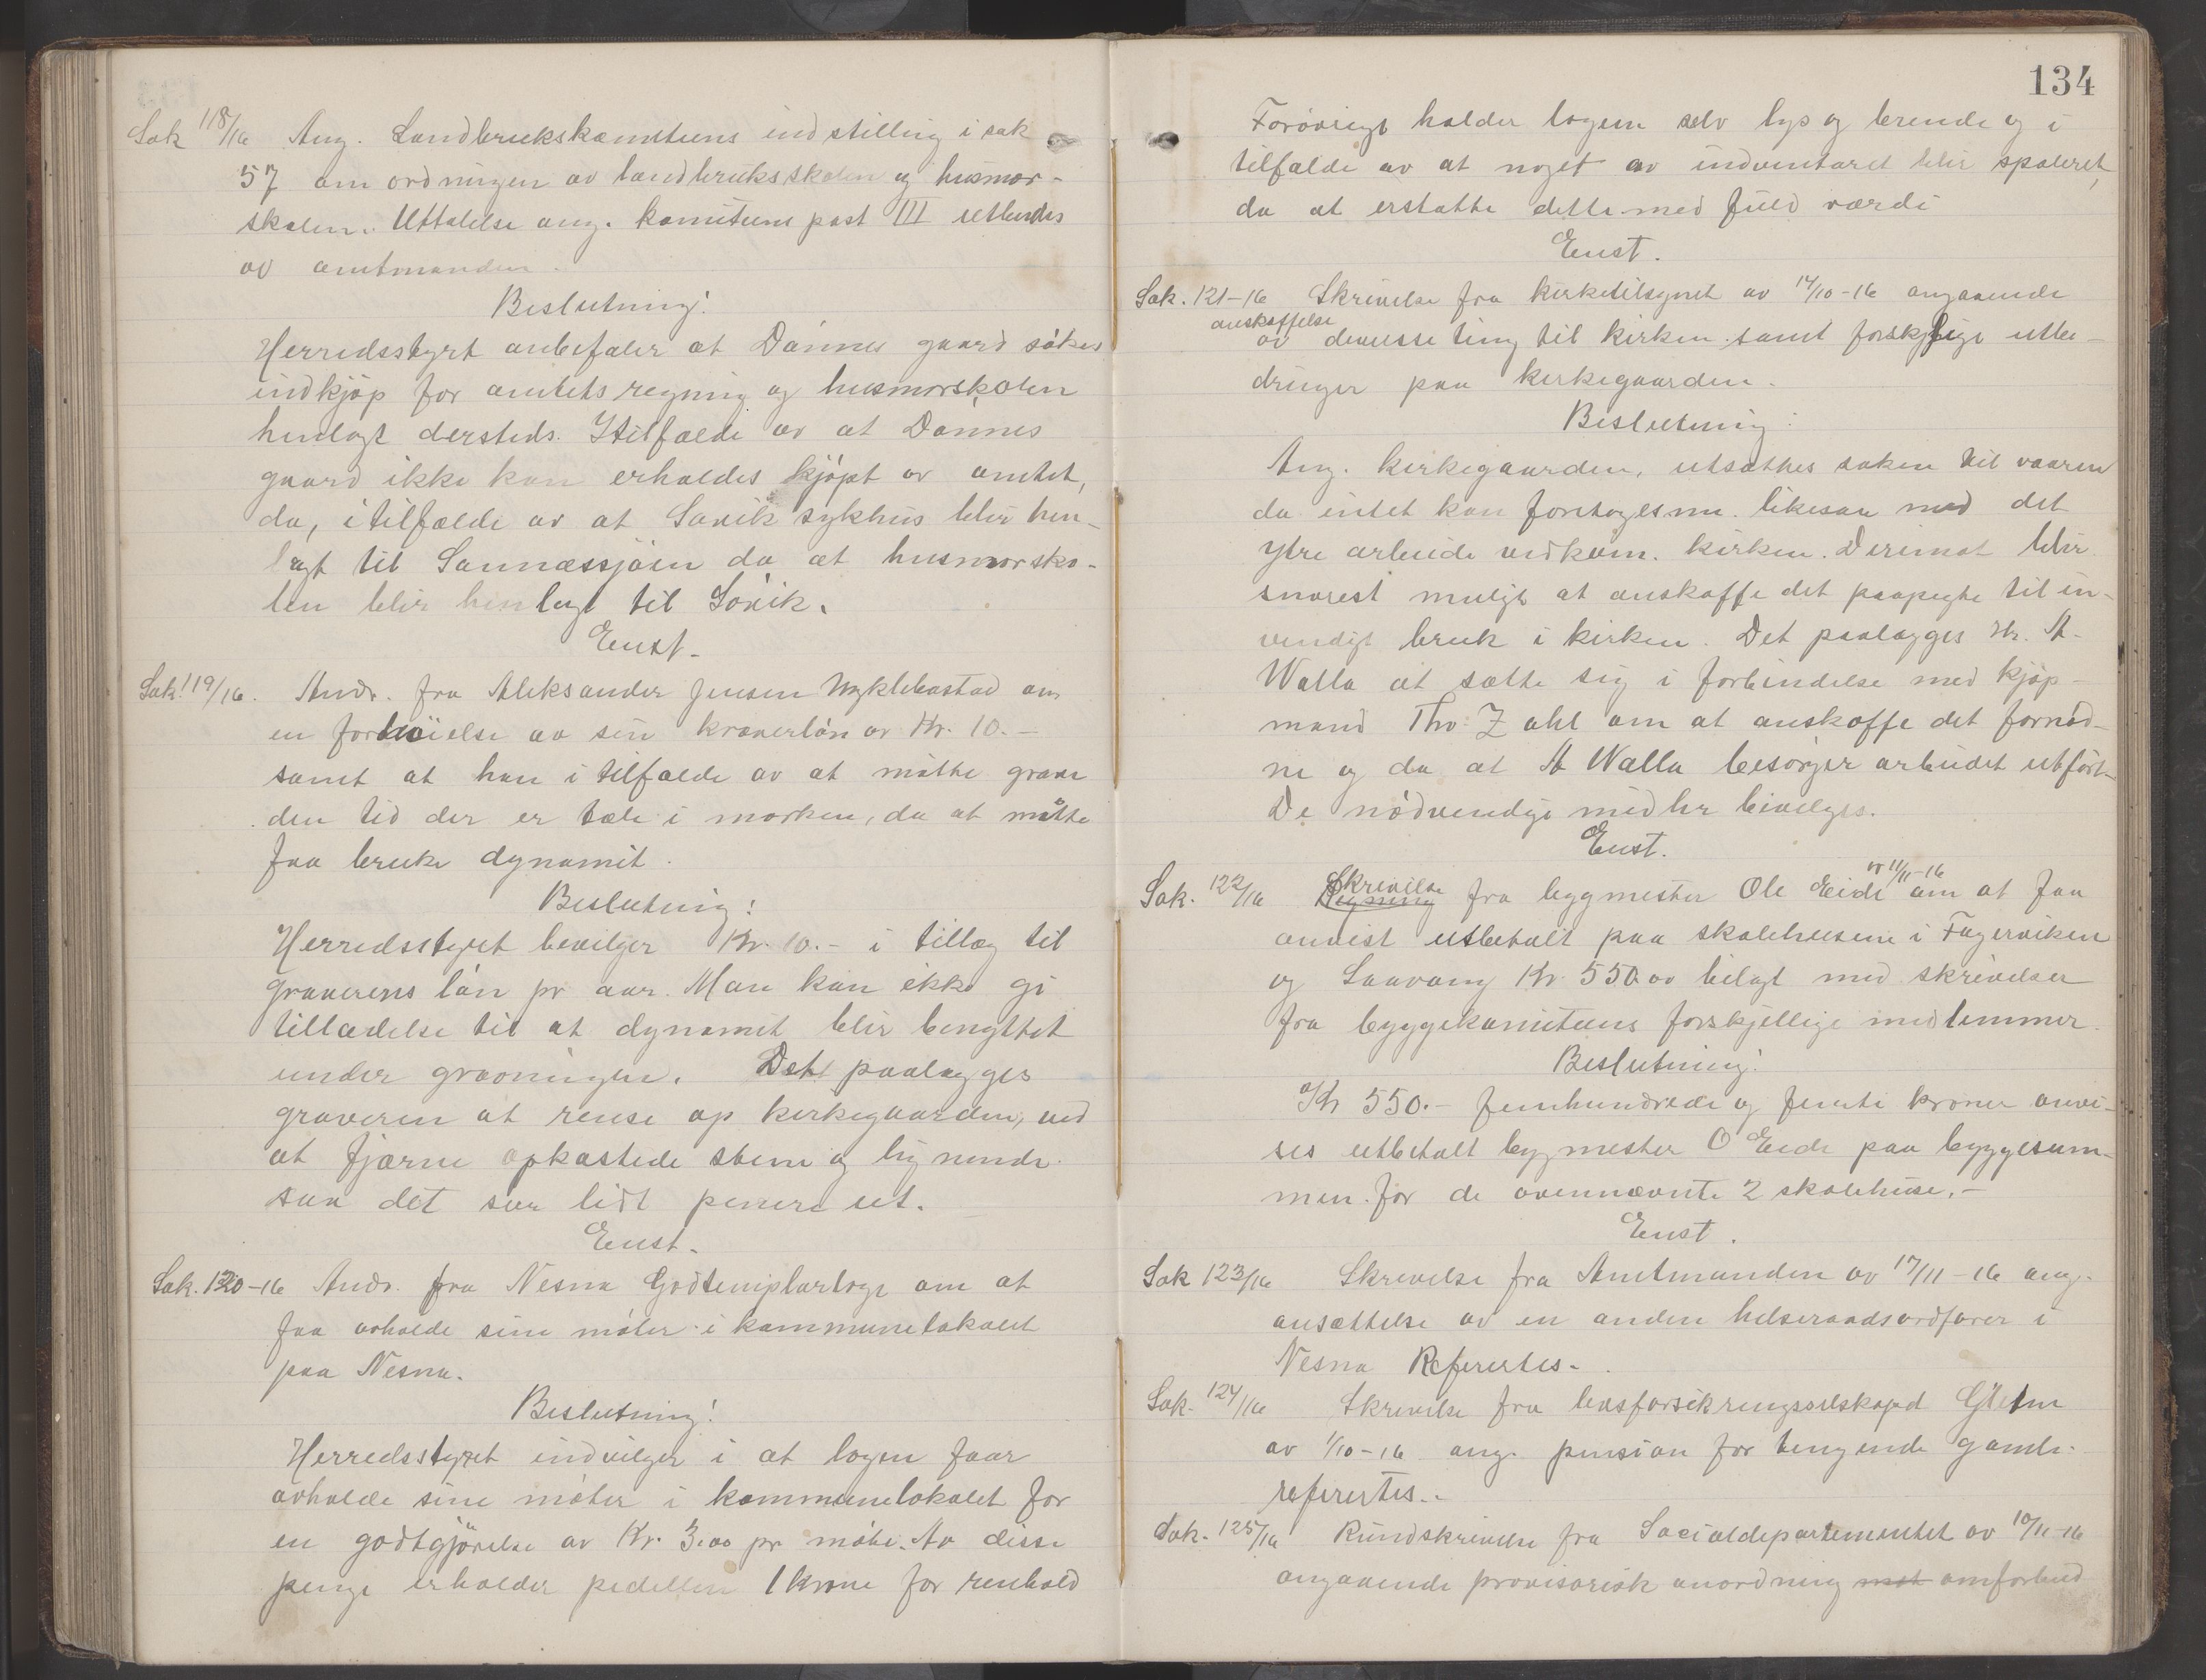 Sak 118/16 Ang. Landbrukskomiteens indstilling i sak
57 om ordningen av landbruksskolen og husmor-
skolen. Uttalelse ang. komiteens post III utbedes
av amtmanden.
Beslutning:
Herredsstyrt anbefaler at Dønnes gaard søkes
indkjøp for amtets regning og husmorskolen
henlagt dersteds. Itilfælde av at Dønnes
gaard ikke kan erholdes kjøpt av amtet,
da, i tilfælde av at Søvik sykhus blir hen-
lagt til Sannæssjøen da at husmorsko-
len blir henlagt til Søvik.
Enst.
Sak 119/16. Andr. fra Aleksander Jensen Nyklebostad om
en forhøielse av sin graverløn av Kr. 10.-
samt at han i tilfælde av at måtte grave
den tid der er tæle i marken, da at måtte
faa bruke dynamit.
Beslutning:
Herredsstyret bevilger Kr. 10.- i tillæg til
graverens løn pr aar. Man kan ikke gi
tilladelse til at dynamit blir benyttet
under gravningen. Det paalægges
graveren at rense op kirkegaarden, ved
at fjærne opkastede stene og lignende
saa det ser lidt penere ut.
Enst.
Sak. 120-16 Andr. fra Nesna Godtemplarloge om at
faa avholde sine møter i kommunelokalet
paa Nesna.
Beslutning:
Herredsstyret indvilger i at logen faar
avholde sine møter i kommunelokalet for
en godtgjørelse av Kr. 3.00 pr møte. Av disse
penge erholder pedellen 1 krone for renhold
134
Forøvrigt holder logen selv lys og brende og i
tilfælde av at noget av indventaret blir spoleret,
da at erstatte dette med fuld værdi
Enst.
Sak. 121-16 Skrivelse fra kirketilsynet av 14/10-16 angaaende
anskaffelse
av diversse ting til kirken samt forskjelige utbe-
dringer paa kirkegaarden.
Beslutning:
Ang. kirkegaarden, utsættes saken til vaaren
da intet kan foretages nu. likesaa med det
ytre arbeide vedkom. kirken. Derimot blir
snarest muligt at anskaffe det paapegte til in-
vendigt bruk i kirken. Det paalægges Hr. A.
Walla at sætte sig i forbindelse med kjøp-
mand Thv. Zahl om at anskaffe det fornød-
ne og da at A Walla besørger arbeidet utført.
De nødvendige midler bevilges.
Enst.
Sak. 122/16 Skrivelse fra bygmester Ole Eide av 11/11-16 om at faa
anvist utbetalt paa skolehusene i Fagerviken
og Saavang Kr 550.00 bilagt med skrivelser
fra byggekomiteens forskjellige medlemmer.
Beslutning:
Kr 550.- femhundrede og femti kroner anvi-
ses utbetalt bygmester O Eide paa byggesum-
men for de ovennævnte 2 skolehuse.-
Enst.
Sak 123/16 Skrivelse fra Amtmanden av 17/11-16 ang.
ansættelse av en anden helseraadsordfører i
Nesna Refertes.
Sak. 124/16 Skrivelse fra livsforsikringsselskapet
av 1/10-16 ang. pension for trengende gamle.
refertes.
Sak. 125/16 Rundskrivelse fra Socialdepartementet av 10/11-16
angaaende provisorisk anordning mot om forbud